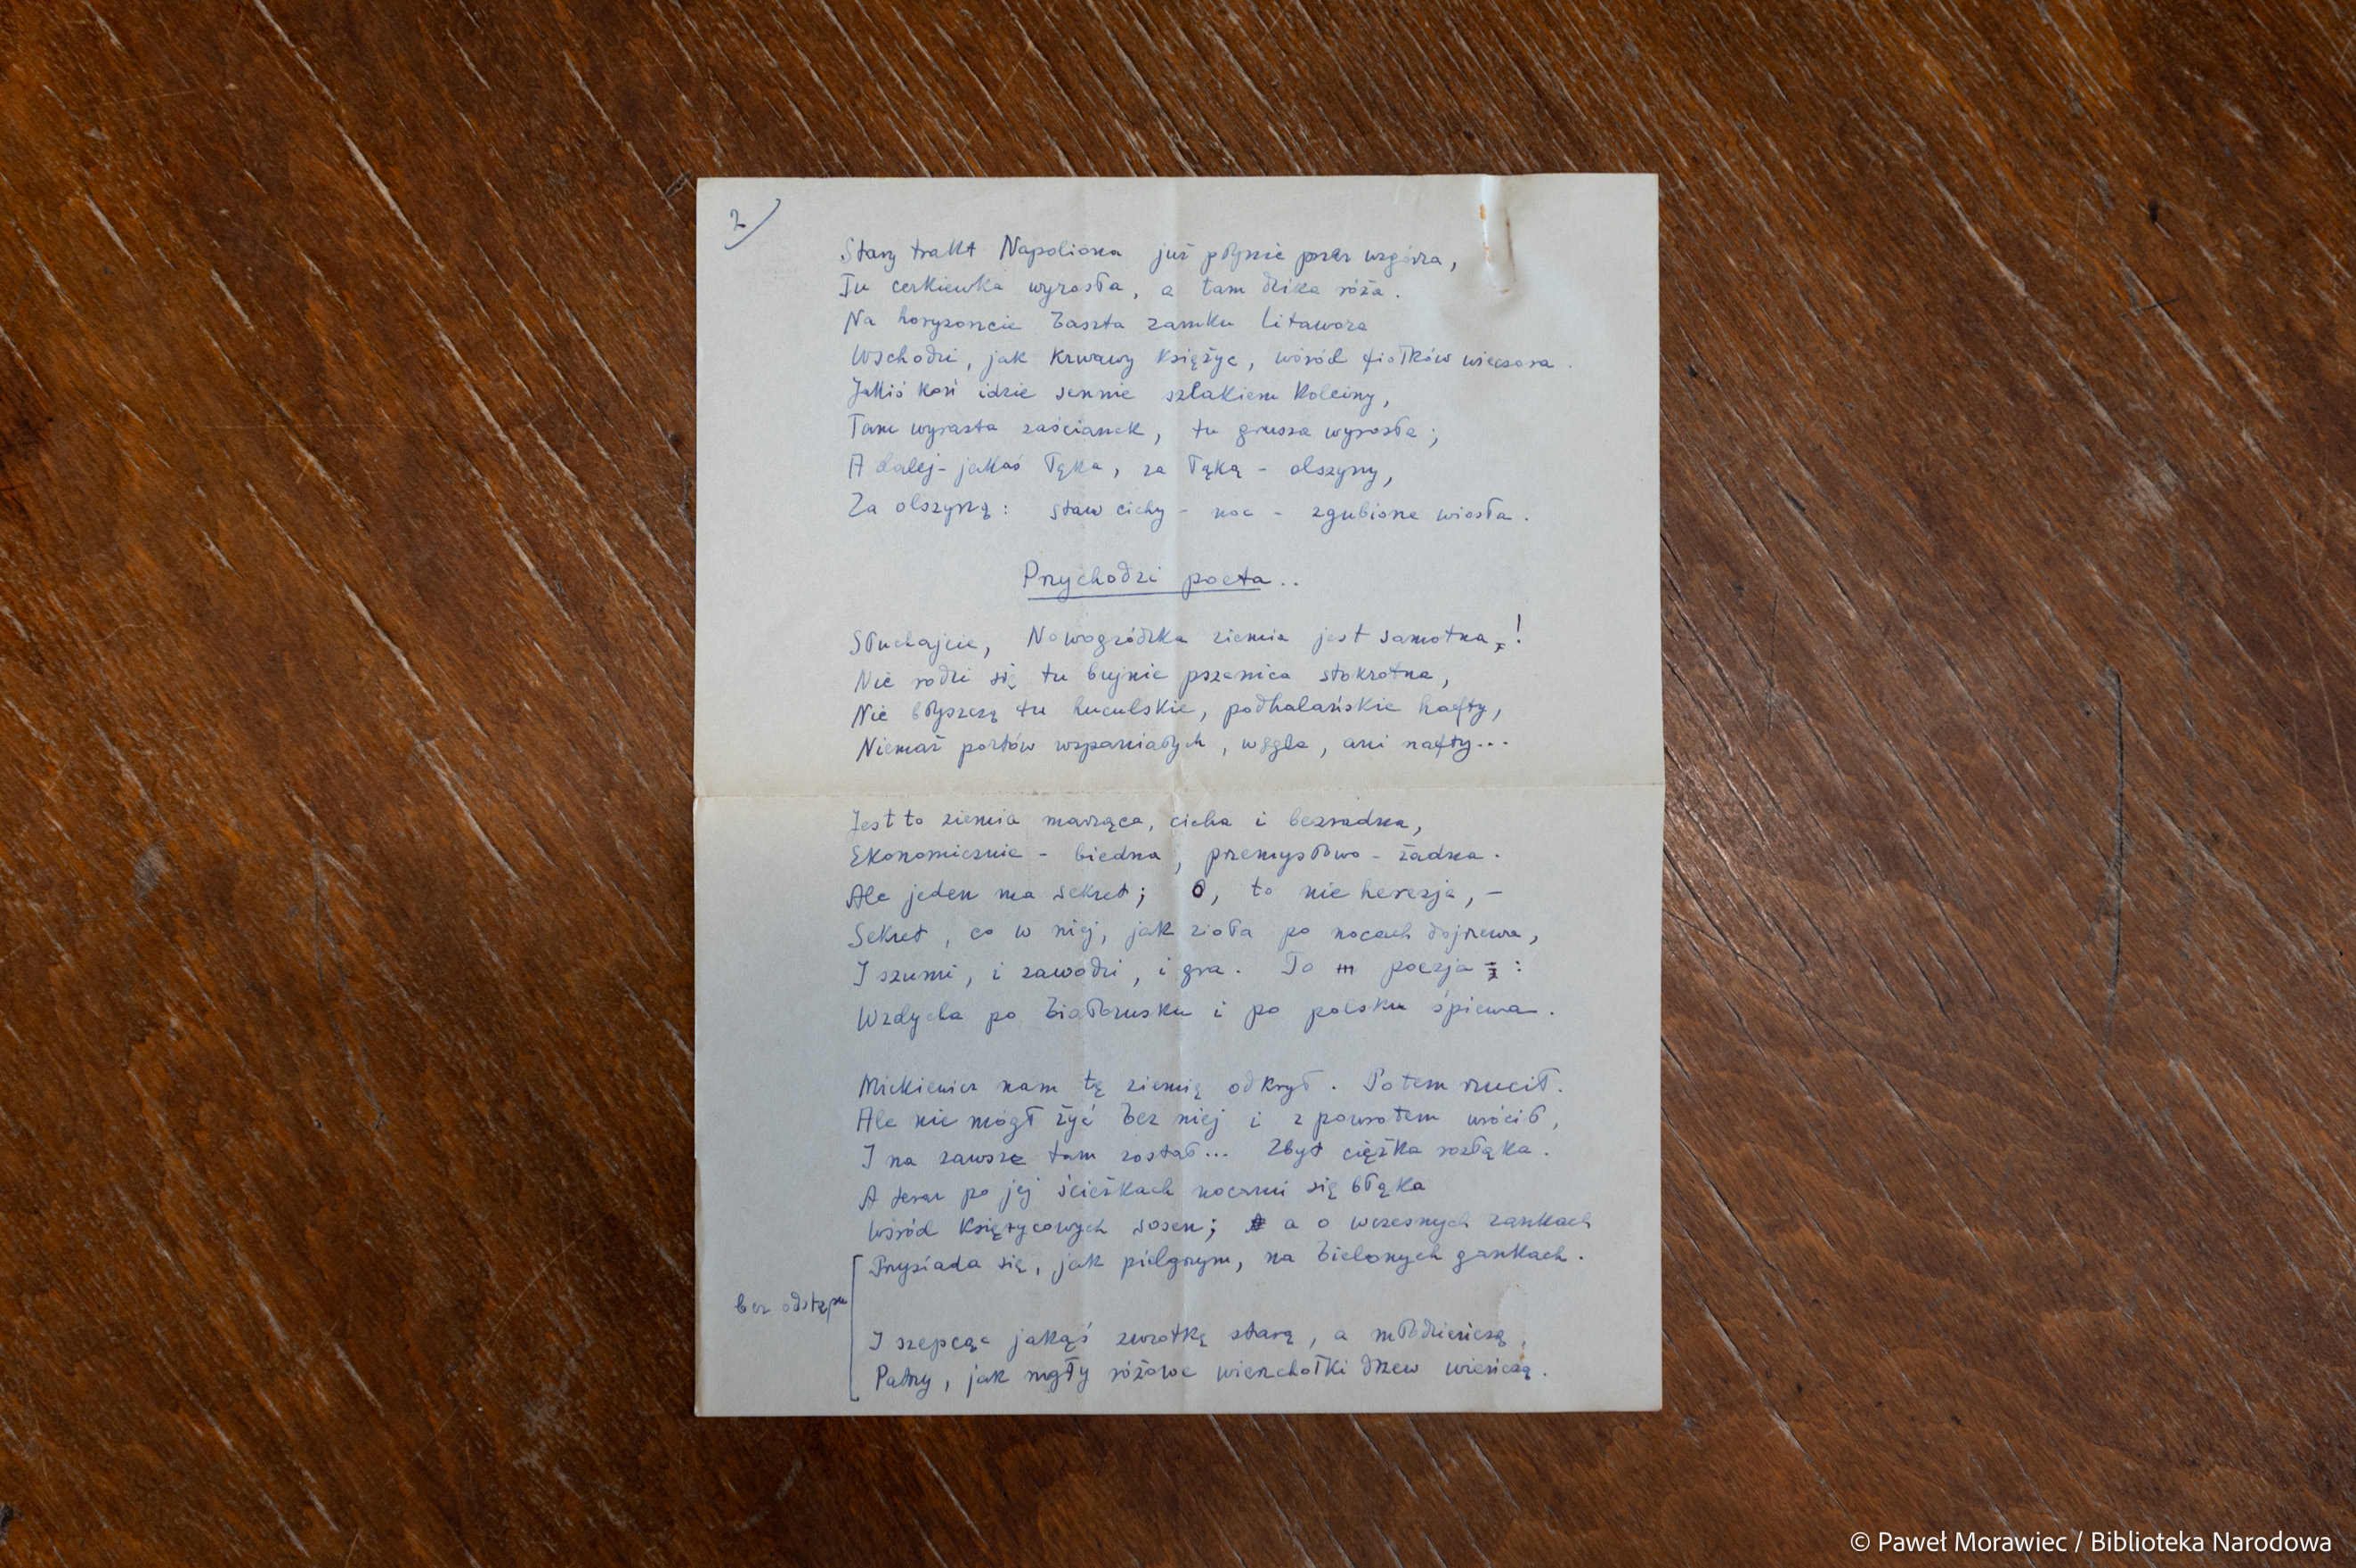 2)
Stary trakt Napoliona już płynie przez wzgórza,
Tu cerkiewka wyrosła, a tam dzika róża.
Na horyzoncie baszta zamku Litawora
Wschodzi, jak krwawy księżyc, wśród fiołków wieczora.
Jakiś koń idzie sennie szlakiem koleiny,
Tam wyrasta zaścianek, tu grusza wyrosła;
A dalej - jakaś łąka, za łąką - olszyny,
Za olszyną: staw cichy - noc - zgubione wiosła.
Przychodzi poeta..
Słuchajcie, Nowogródzka ziemia jest samotna!
Nie rodzi się tu bujnie pszenica stokrotna,
Nie błyszczą tu huculskie, podhalańskie hafty,
Niemasz portów wspaniałych, węgla, ani nafty...
Jest to ziemia marząca, cicha i bezradna,
Ekonomicznie - biedna, przemysłowo - żadna.
Ale jeden ma sekret; O, to nie herezja, -
Sekret, co w niej, jak zioła po nocach dojrzewa,
I szumi, i zawodzi, i gra. To poezja:
Wzdycha po białorusku i po polsku śpiewa.
Mickiewicz nam tę ziemię odkrył. Potem rzucił.
Ale nie mógł żyć bez niej i z powrotem wrócił,
I na zawsze tam został... Zbyt ciężka rozłąka.
A teraz po jej ścieżkach nocami się błąka
Wśród księżycowych sosen; a o wczesnych rankach
Przysiada się, jak pielgrzym, na bielonych gankach.
bez odstępu
I szepcąc jakąś zwrotkę starą, a młodzieńczą,
Patrzy, jak mgły różowe wierzchołki drzew wieńczą.
© Paweł Morawiec / Biblioteka Narodowa